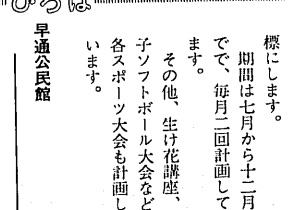 標にします。
期間は七月から十二月
でで、毎月二回計画して
ます。
その他、生け花講座、
子ソフトボール大会など
各スポーツ大会も計画し
います。
早通公民館